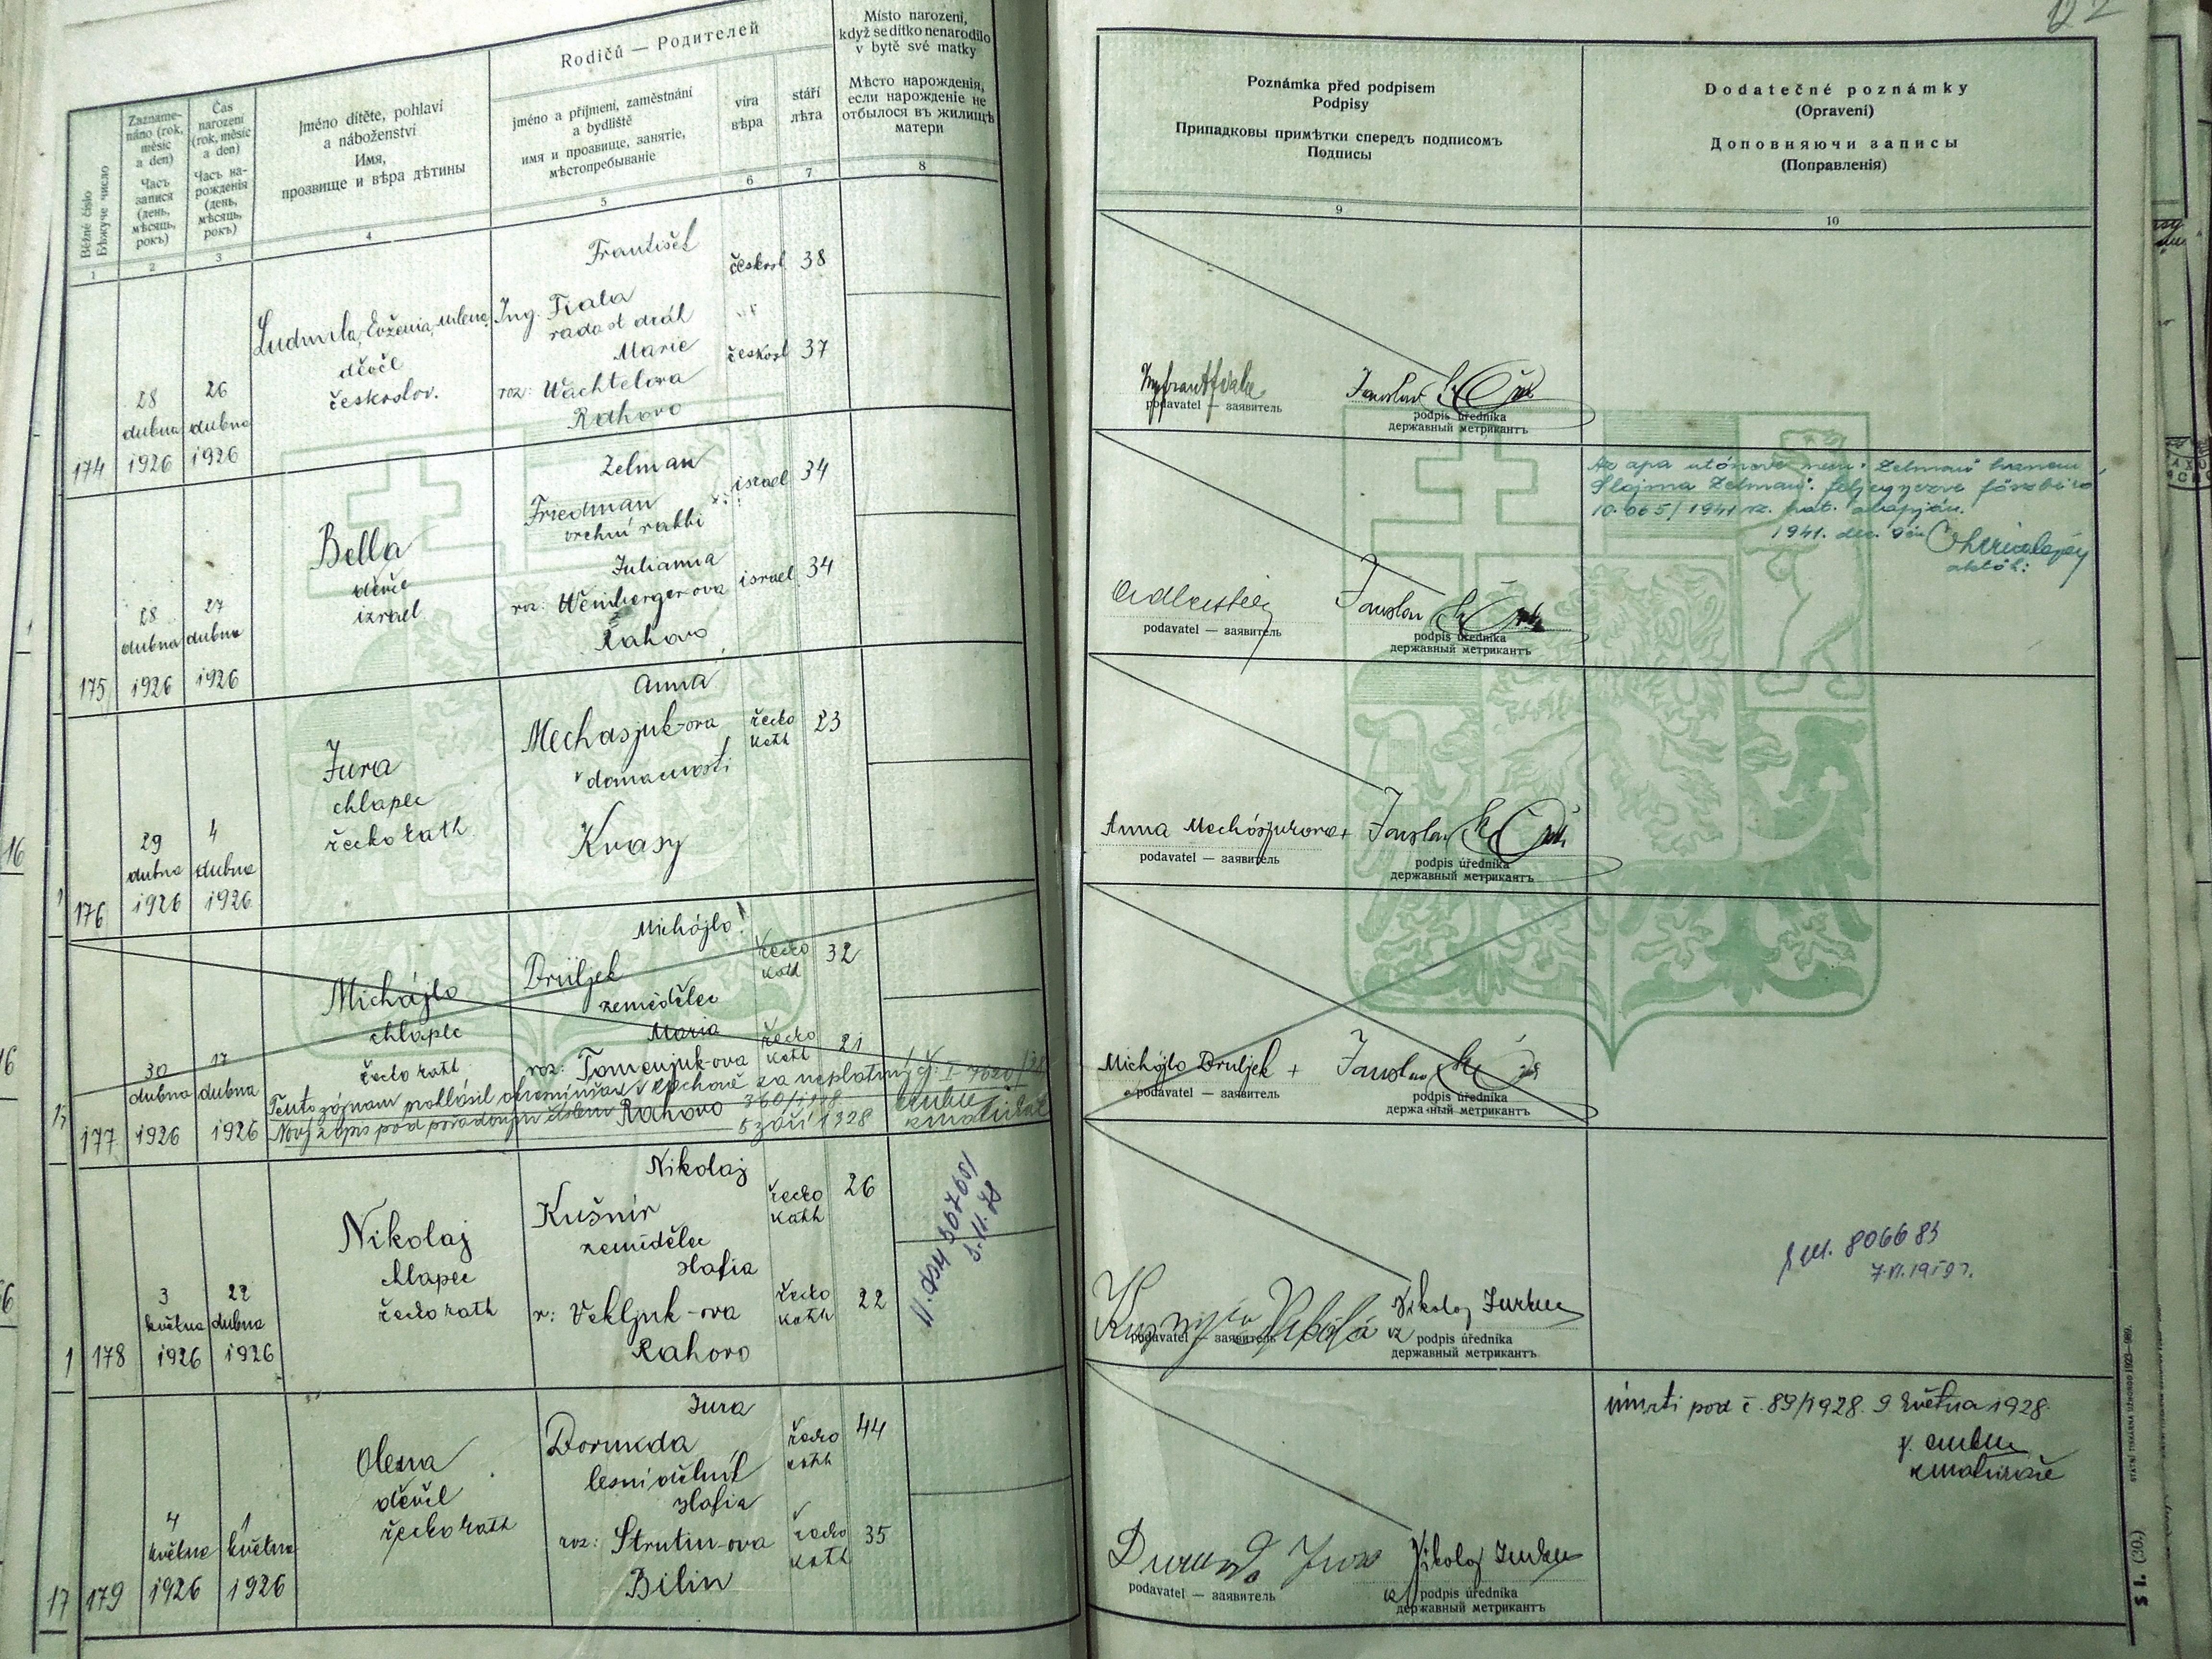 Běžné číslo
Бѣжуче число
Zazname-
náno (rok,
měsíc
a den)
Часъ
записи
(день,
мѣсяць,
рокъ)
Čas
narození
(rok, měsíc
a den)
Часъ на-
рожденія
(день,
мѣсяць,
рокъ)
Jméno dítěte, pohlaví
a náboženství
Имя,
прозвище и вѣра дѣтины
Rodičů — Родителей
jméno a příjmení, zaměstnání
a bydliště
имя и прозвище, занятіе,
мѣстопребываніе
víra
вѣра
stáří
лѣта
Místo narození,
když se dítko nenarodilo
v bytě své matky
Мѣсто нарожденія,
если нарожденіе не
отбылося въ жилищѣ
матери
1
2
3
4
5
6
7
8
Poznámka před podpisem
Podpisy
Припадковы примѣтки спередъ подписомъ
Подписы
9
Dodatečné poznámky
(Opravení)
Доповняючи записы
(Поправленія)
10
174
28
dubna
1926
26
dubna
1926
Ludmila, Evženia, Milena
děvče
českoslov.
František
Ing. Fiala
rada st drah
Marie
roz: Wachtelova
Rahovo
českosl 38
českosl 37
podavatel — заявитель
Jaroslav
podpis úředníka
державный метрикантъ
175
28
dubna
1926
27
dubna
1926
Bella
děvče
izrael
Zelman
Friedman
vrchní rabbi
Julianna
roz: Weinbergerova
Rahovo
israel 34
israel 34
podavatel — заявитель
Jaroslav
podpis úředníka
державный метрикантъ
Az apa utóneve nem "Zelman" hanem
"Slojma Zelman". feljegyezve főszolgabíró
10.065/1941 sz. hat. alapján.
1941. dec. 9én
176
29
dubna
1926
4
dubna
1926
Jura
chlapec
řeckokath
Anna
Mechasjuk-ova
v domacnosti
Kvasy
řecko
kath
23
Anna Mechósjukova +
podavatel — заявитель
Jaroslav
podpis úředníka
державный метрикантъ
177
30
dubna
1926
17
dubna
1926
Michájlo
chlapec
řecko kath
Michájlo
Druljek
zemědělec
Maria
roz: Tomenjuk-ova
Rahovo
řecko
kath
32
řecko
kath
21
Tento záznam prohlásil okresní úřad v Rachově za neplatný čj. I-7620/28
Nový zápis pod pořadovým číslem 360/1928
5 září 1928
Michájlo Druljek +
podavatel — заявитель
Jaroslav
podpis úředníka
державный метрикантъ
178
3
května
1926
22
dubna
1926
Nikolaj
chlapec
řecko kath
Nikolaj
Kušnir
zemědělec
Hafia
r: Vekljuk-ova
Rahovo
řecko
kath
26
řecko
kath
22
podavatel — заявитель
Nikolaj
podpis úředníka
державный метрикантъ
806683
179
4
května
1926
1
května
1926
Olena
děvče
řecko kath
Jura
Dorunda
lesní dělník
Hafia
roz: Strutin-ova
Bilin
řecko
kath
44
řecko
kath
35
podavatel — заявитель
Nikolaj
podpis úředníka
державный метрикантъ
úmrtí pod č. 89/1928. 9 května 1928.
S I. (30.)